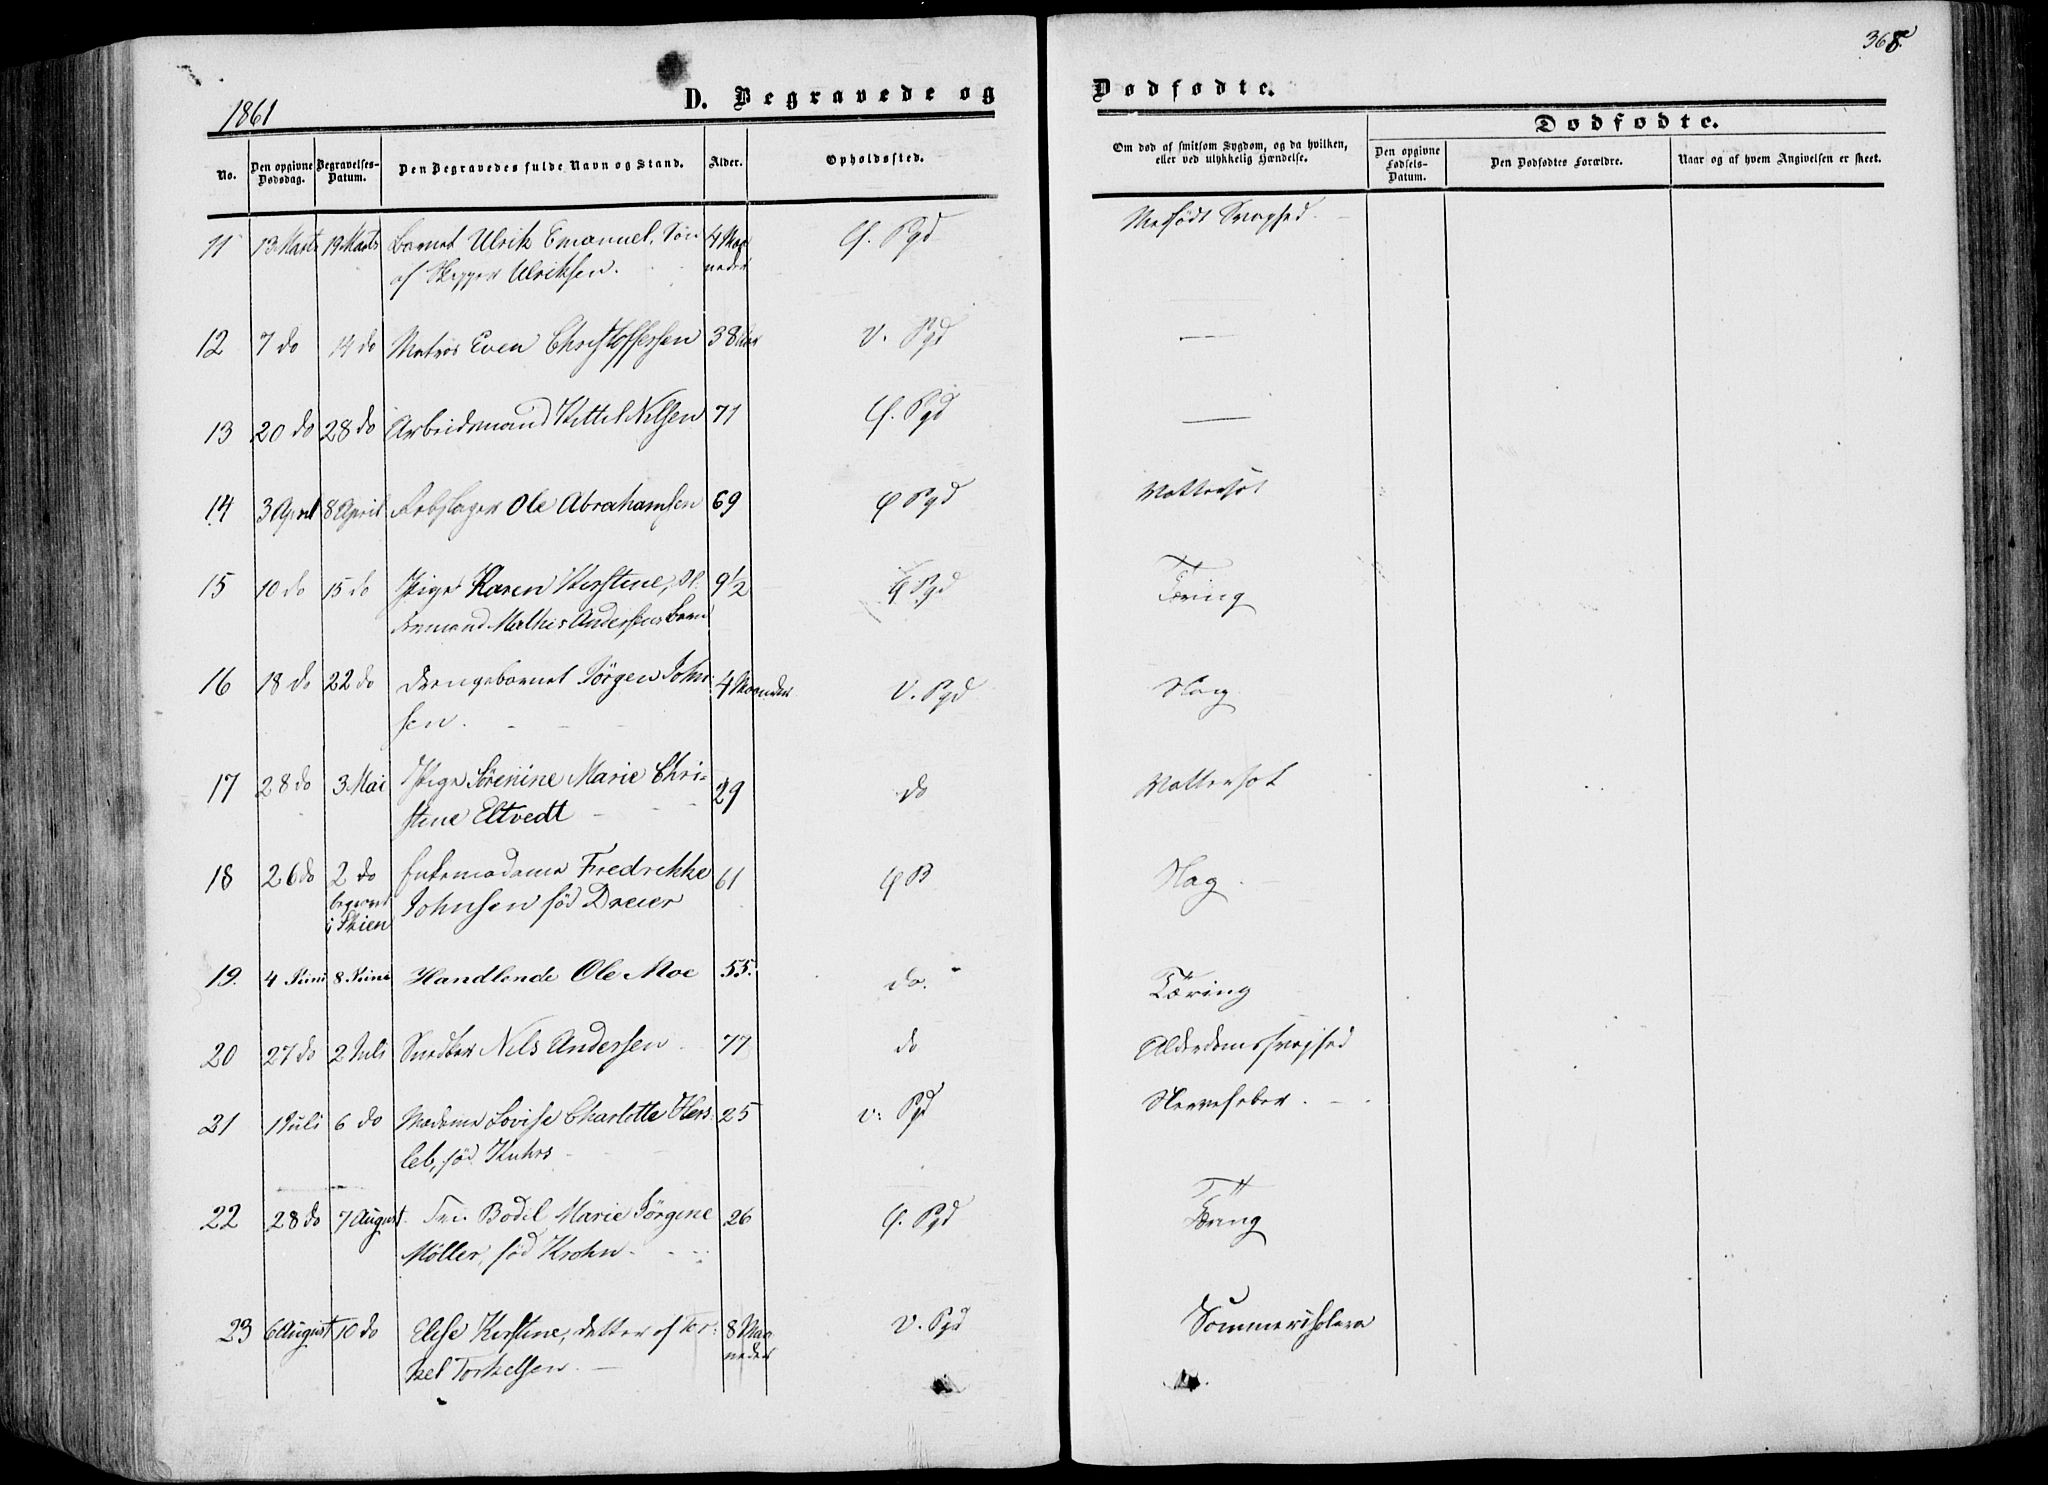 368
1861
D. Begravede og
Dodfodte.
No.
Den opgivne Dødsdag.
Begravelses-Datum.
Den Begravedes fulde Navn og Stand.
Alder.
Opholdssted.
Om død af smitsom Sygdom, og da hvilken, eller ved ulykkelig Hændelse.
Dodfodte.
Den opgivne Fødsels-Datum.
Den Dødfødtes Forældre.
Naar og af hvem Angivelsen er skeet.
11 13 Marts 19 Marts Barnet Ulrik Emanuel, Søn 4 Maa Ø. Pgd Medfødt Svaghed
af Skipper Ulriksen. neder
12 7 do 14 do Matros Even Christoffersen 38 Aar V. Pgd —
13 20 do 28 do Arbeidsmand Kittil Nilsen 71 Ø. Pgd —
14 3 April 8 April Rebslager Ole Abrahamsen 69 Ø Pgd Vattersot
15 10 do 15 do Pige Karen Kirstine, 9 1/2 Ø Pgd Tæring
Mathis Andersens Barn
16 18 do 22 do Drengebarnet Jørgen John- 4 Maaneder V. Pgd Slag
sen.
17 28 do 3 Mai Pige Sørenine Marie Chri- 29 do Vattersot
stine Eltvedt
18 26 do 2 do Enkemadame Fredrikke 61 Ø B Slag
begravet i Skien Johnsen fød Dreier
19. 4 Juni 8 Juni Handlende Ole Moe 55. do. Tæring
20 27 do 2 Juli Snedker Nils Andersen 77 do Alderdomssvaghed
21 1 Juli 6 do Madame Lovise Charlotte Hers- 25 V. Pgd Nervefeber.
leb, fød Kuhrs
22 28 do 7 August Fru Bodil Marie Jørgine 26 Ø. Pgd Tæring
Möller, fød Krohn
23 6 August 10 do Elise Kirstine, datter af Tor- 8 Maa V. Pgd Sommercholera
kel Torkelsen. neder